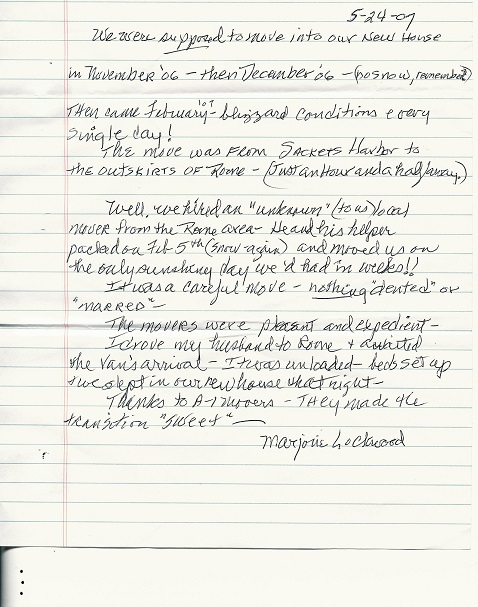 5-24-07
We were supposed to move into our New House
in November '06 - then December '06 - (no snow, remember?)
Then came February '07 - blizzard conditions every
single day!
The move was from Sackets Harbor to
the outskirts of Rome - (Just an Hour and a half away.)
Well, we hired an "unknown" (to us) local
mover from the Rome area - He and his helper
packed on Feb 5th (snow again) and moved us on
the only sunshiny day we'd had in weeks!!
It was a careful move - nothing "dented" or
"marred" -
The movers were pleasant and expedient -
I drove my husband to Rome & awaited
the van's arrival - It was unloaded - beds set up
& we slept in our new house that night -
Thanks to A-1 movers - They made the
transition "sweet" -
Marjorie Lockwood